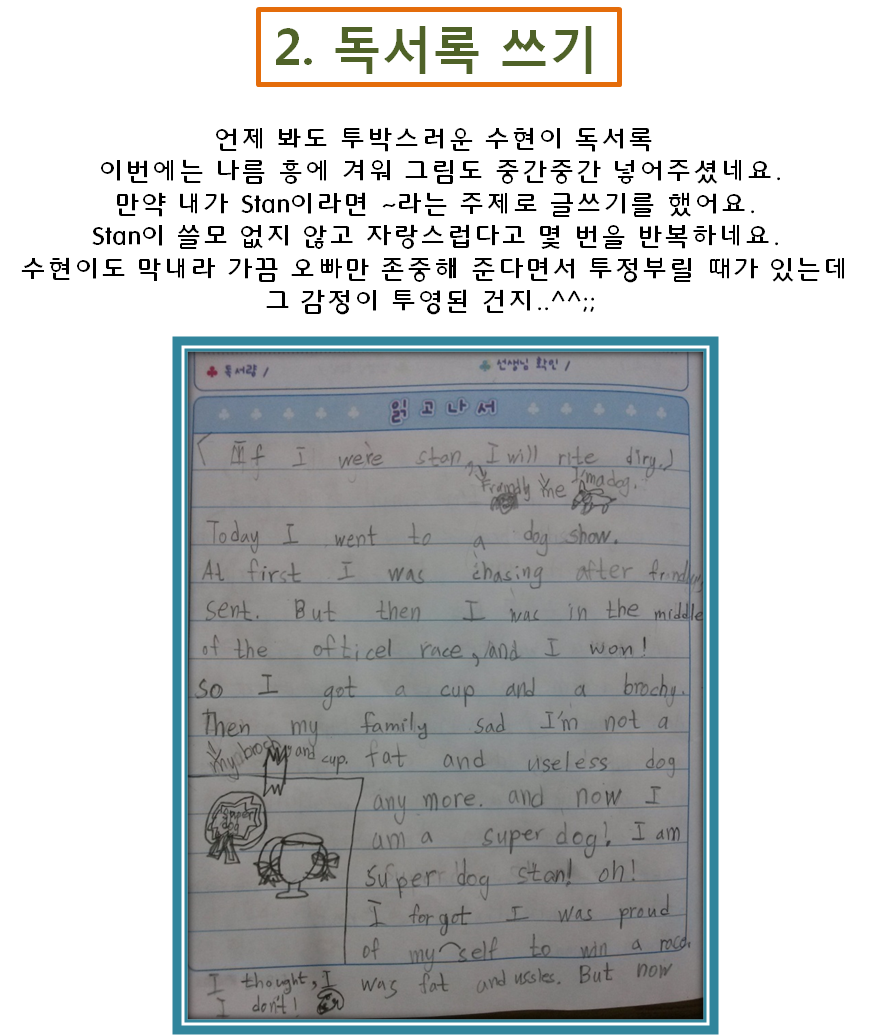 2. 독서록 쓰기
언제 봐도 투박스러운 수현이 독서록
이번에는 나름 흥에 겨워 그림도 중간중간 넣어주셨네요.
만약 내가 Stan이라면 ~라는 주제로 글쓰기를 했어요.
Stan이 쓸모 없지 않고 자랑스럽다고 몇 번을 반복하네요.
수현이도 막내라 가끔 오빠만 존중해 준다면서 투정부릴 때가 있는데
그 감정이 투영된 건지..^^;;
독서량 / 선생님 확인 /
읽고나서
( If I were stan, I will rite diry.)
me I'm a dog.
Today I went to a dog show.
At first I was chasing after
sent. But then I was in the middle
of the officel race, and I won!
so I got a cup and a brochy.
Then my family sad I'm not a
my and cup.
fat and useless dog
super dog
any more. and now I
am a super dog! I am
super dog stan! oh!
I forgot I was proud
of my self to win a
I thought, I was fat and ussles. But now
I don't!